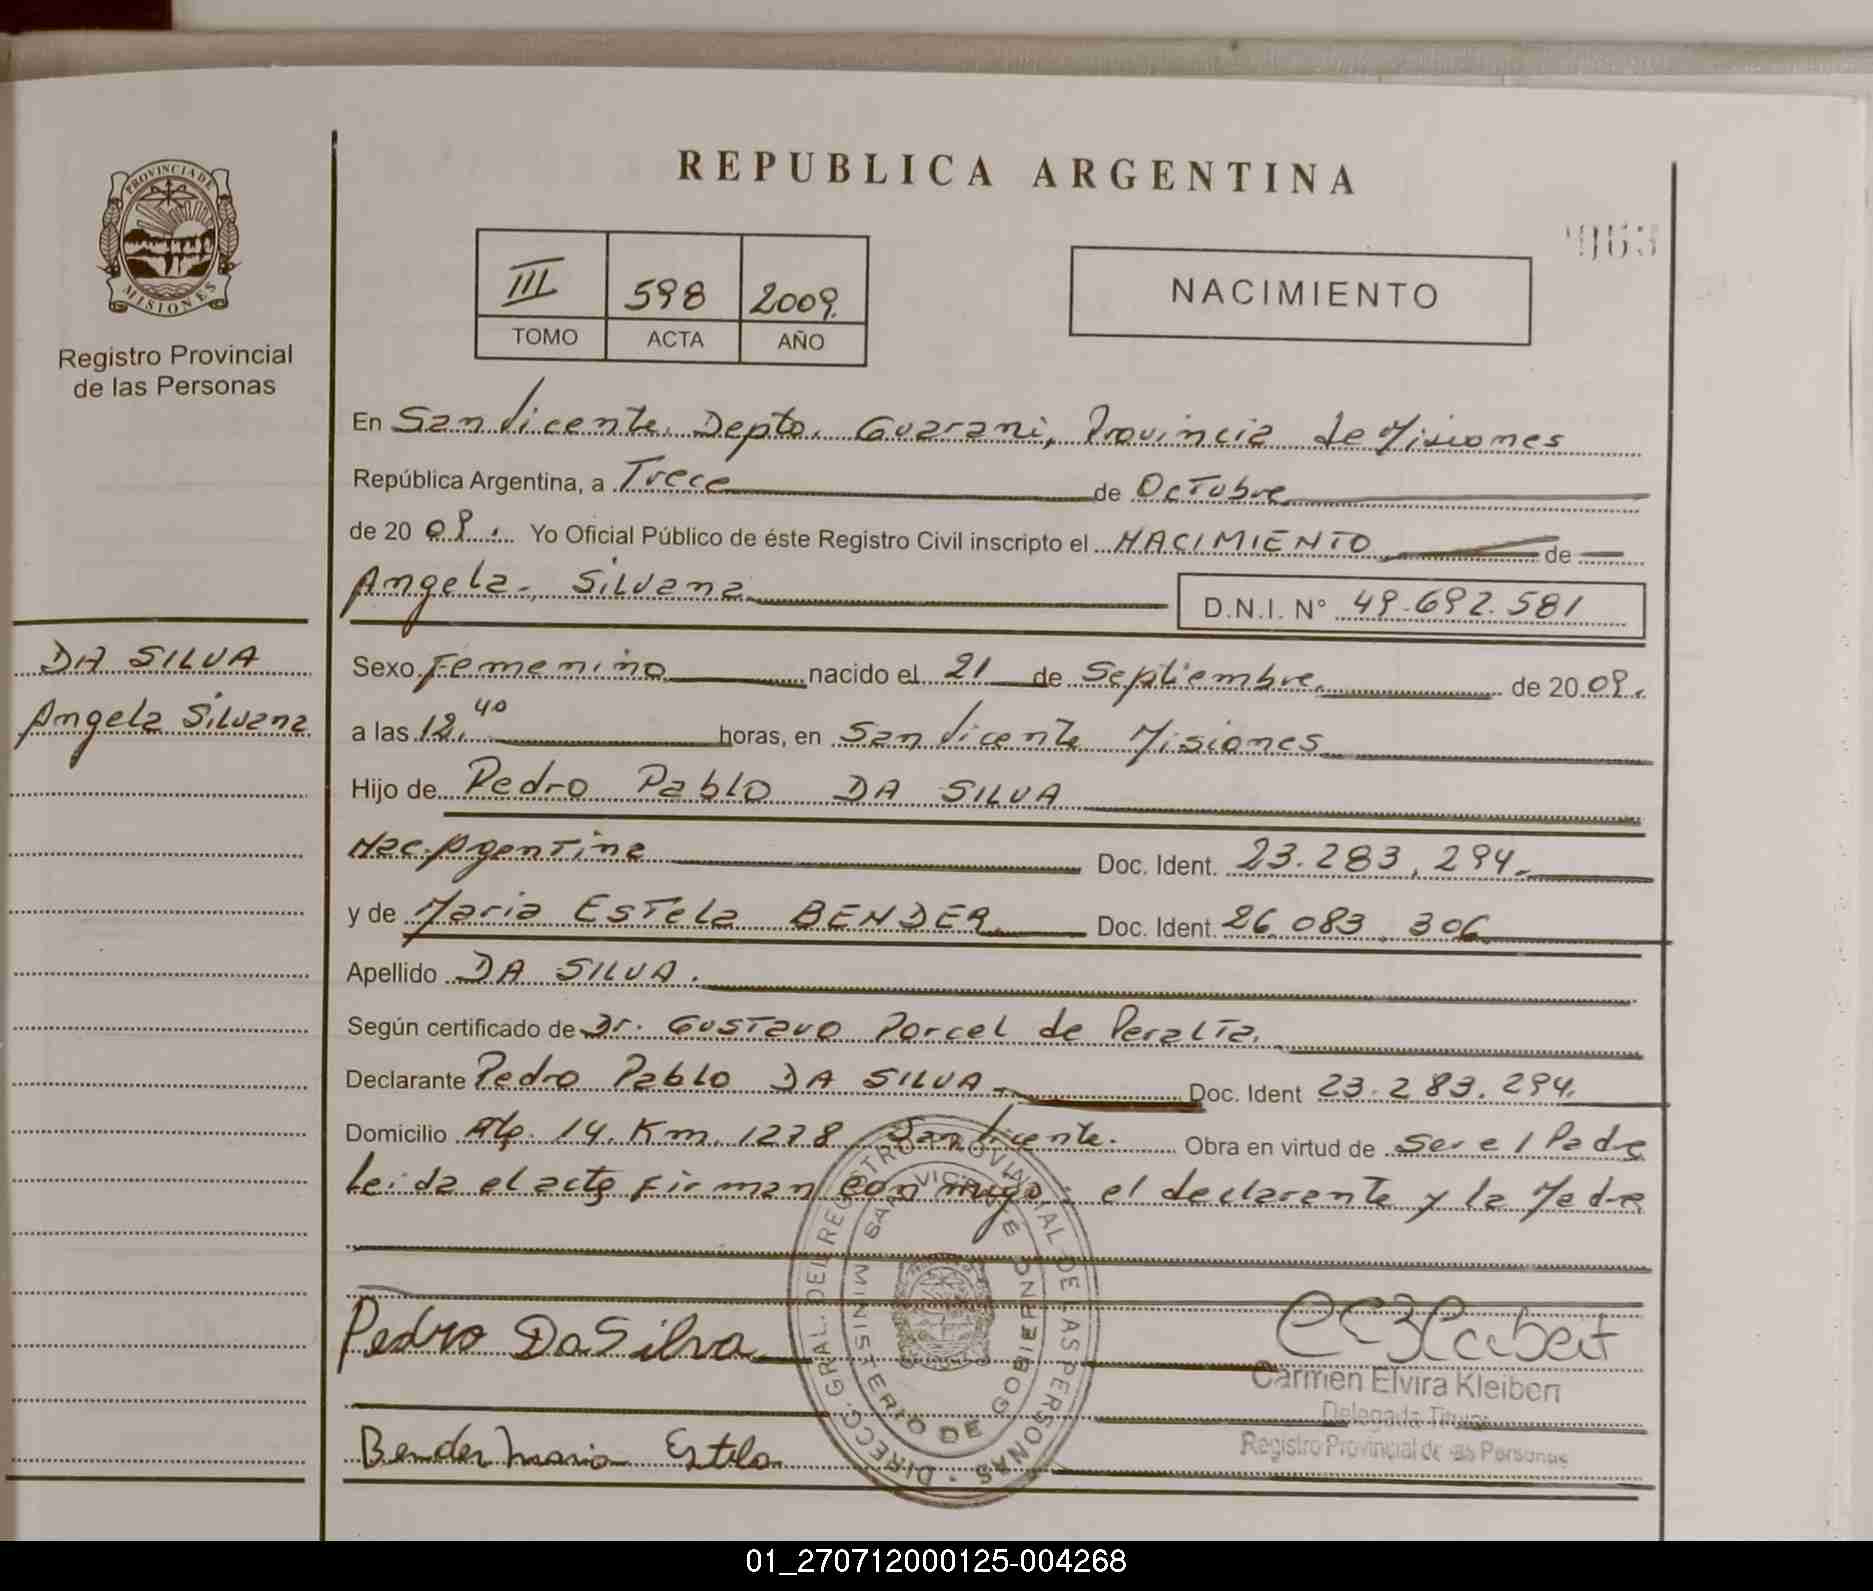 REPUBLICA ARGENTINA
PROVINCIA DE MISIONES
Registro Provincial
de las Personas
III 598 2009.
TOMO ACTA AÑO
NACIMIENTO
En San Vicente, Depto. Guarani, Provincia de Misiones
República Argentina, a Trece de Octubre
de 20 09. Yo Oficial Público de éste Registro Civil inscripto el NACIMIENTO de
Angela Silvana D.N.I. N° 49.692.581
DA SILVA
Angela Silvana
Sexo Femenino nacido el 21 de Septiembre de 20 09.
a las 12.40 horas, en San Vicente Misiones
Hijo de Pedro Pablo DA SILVA
Nac. Agentina Doc. Ident. 23.283.294.
y de Maria Estela BENDER Doc. Ident. 26.083.306
Apellido DA SILVA.
Según certificado de Dr. Gustavo Porcel de Peralta.
Declarante Pedro Pablo DA SILVA Doc. Ident 23.283.294.
Domicilio 14. Km. 1278 San Vicente. Obra en virtud de Ser el Padre
Leida el acta firman conmigo: el declarante y la Madre
DIRECC. GRAL. DEL REGISTRO PROVINCIAL DE LAS PERSONAS
SAN VICENTE
MINISTERIO DE GOBIERNO
Pedro DaSilva
Carmen Elvira Kleibert
Delegada Titular
Registro Provincial de las Personas
Bender Maria Estela
01_270712000125-004268